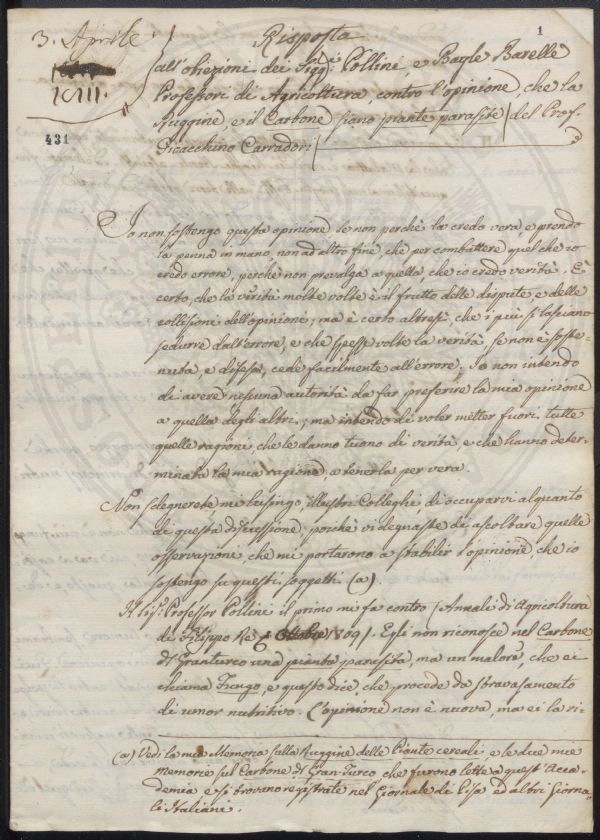 1
3. Aprile
XCIII.
431
Risposta
all'obiezioni dei Sigg.i Pollini e Bayle Barelle
Professori di Agricoltura, contro l'opinione che la
Ruggine, e il Carbone siano piante parasite / del Prof.
Gioacchino Carradori /
Io non sostengo questa opinione se non perchè la credo vera e prendo
la penna in mano non ad altro fine, che per combattere quel che io
credo errore, perchè non prevalga a quella che io credo verità. È
certo, che la verità molte volte è il frutto delle dispute, e delle
collisioni dell'opinione; ma è certo altresì, che i più si lasciano
sedurre dall'errore, e che spesse volte la verità, se non è soste-
nuta, e difesa, cede facilmente all'errore. Io non intendo
di avere nessuna autorità da far preferire la mia opinione
a quella degli altri; ma intendo di voler metter fuori tutte
quelle ragioni, che le danno tuono di verità, e che hanno deter-
minata la mia ragione, a tenerla per vera.
Non sdegnerete mi lusingo, illustri Colleghi di occuparvi alquanto
di questa discussione, poichè vi degnaste di ascoltare quelle
osservazioni che mi portarono a stabilir l'opinione, che io
sostengo su questi soggetti (a).
Il Sig. Professor Pollini il primo mi fa contro (Annali di Agricoltura
di Filippo Re 6 Ottobre 1809). Egli non riconosce nel Carbone
di Granturco una pianta parasita, ma un malore, che ei
chiama Fungo, e questo dice, che procede da stravasamento
di umor nutritivo. L'opinione non è nuova, ma ei la ri-
(a) Vedi la mia Memoria sulla Ruggine delle Piante cereali e le due mie
memorie sul Carbone di Gran-Turco, che furono lette a quest'Acca-
demia e si trovano registrate nel Giornale di Pisa ed altri Giorna-
li Italiani.